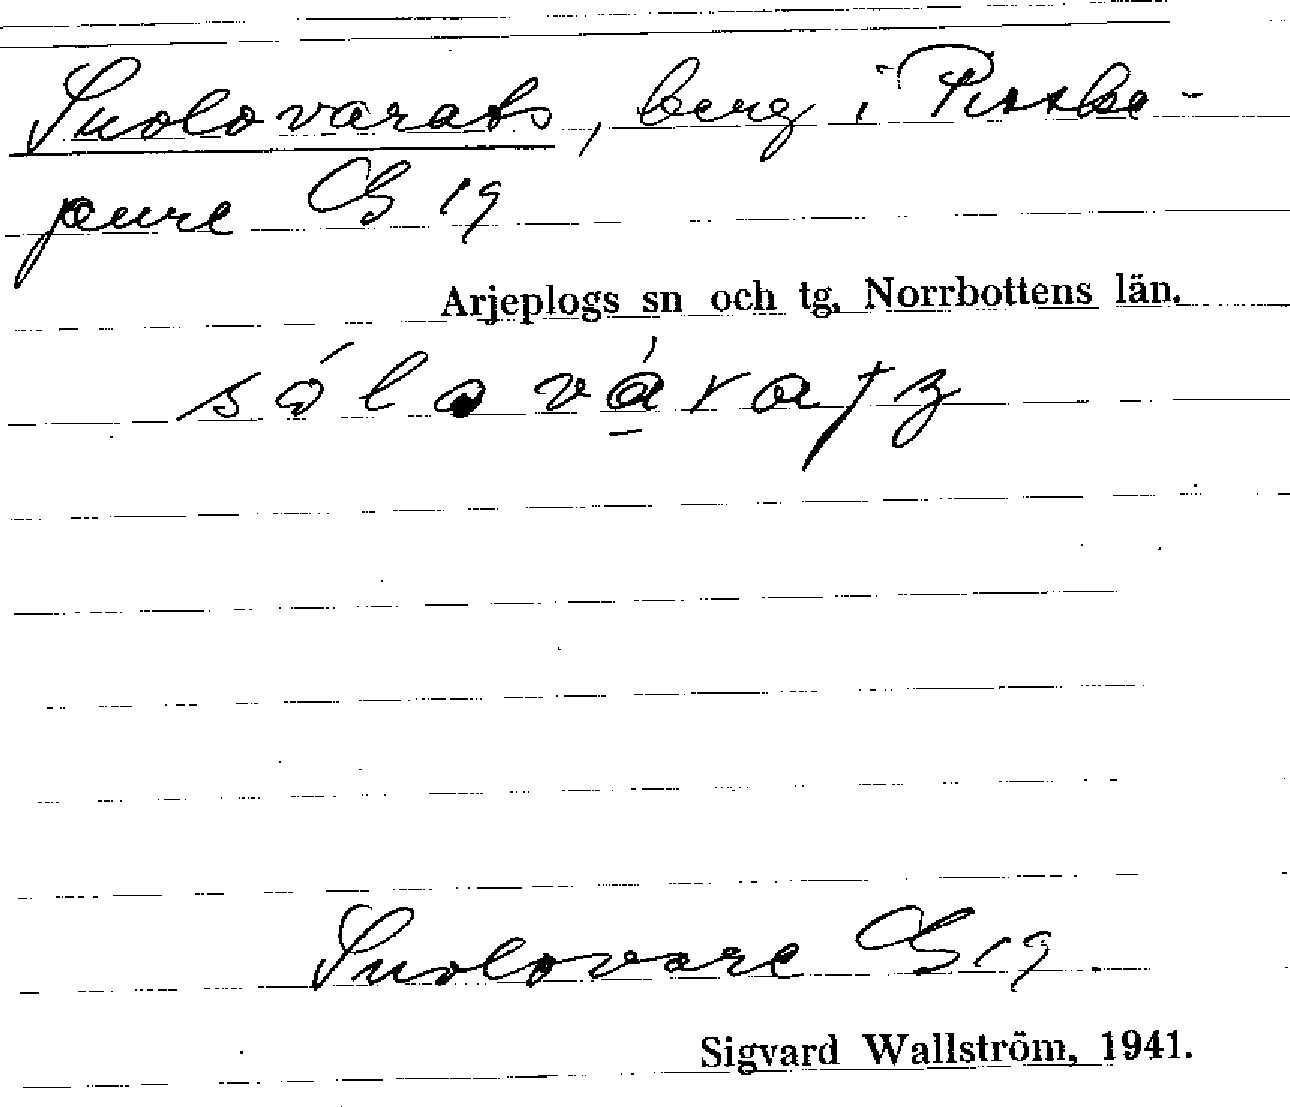 Suolovarats, berg i Piske-
jaure GS 19
Arjeplogs sn och tg, Norrbottens län.
sólaváratz
Suolovare GS 19.
Sigvard Wallström, 1941.